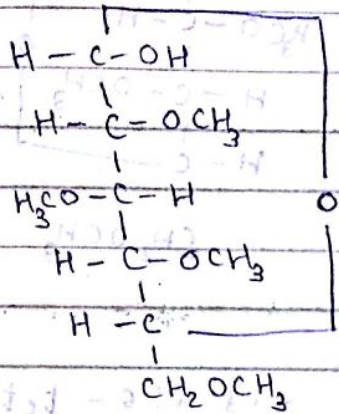 H - C - OH
H - C = OCH3
H3CO - C - H
O
H - C - OCH3
H - C
CH2OCH3